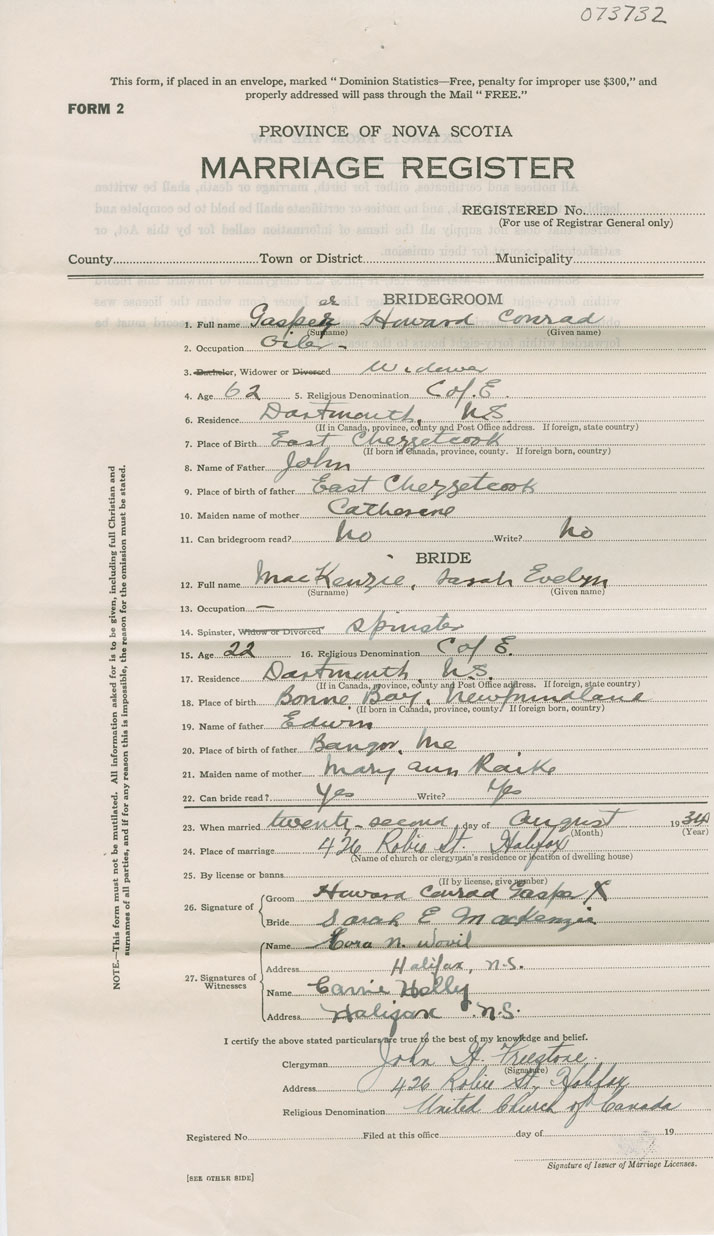 073732
This form, if placed in an envelope, marked "Dominion Statistics—Free, penalty for improper use $300," and
properly addressed will pass through the Mail "FREE."
FORM 2
PROVINCE OF NOVA SCOTIA
MARRIAGE REGISTER
REGISTERED No.
(For use of Registrar General only)
County Town or District Municipality
BRIDEGROOM
1. Full name Gasper Howard Conrad
(Surname) (Given name)
2. Occupation Oiler -
3. Bachelor, Widower or Divorced Widower
4. Age 62 5. Religious Denomination C of. E.
6. Residence Dartmouth, N.S.
(If in Canada, province, county and Post Office address. If foreign, state country)
7. Place of Birth East Chezzetcook
(If born in Canada, province, county. If foreign born, country)
8. Name of Father John
9. Place of birth of father East Chezzetcook
10. Maiden name of mother Catherine
11. Can bridegroom read? No Write? No
BRIDE
12. Full name MacKenzie, Sarah Evelyn
(Surname) (Given name)
13. Occupation —
14. Spinster, Widow or Divorced Spinster
15. Age 22 16. Religious Denomination C of E.
17. Residence Dartmouth, N.S.
(If in Canada, province, county and Post Office address. If foreign, state country)
18. Place of birth Bonne Bay, Newfoundland
(If born in Canada, province, county. If foreign born, country)
19. Name of father Edwin
20. Place of birth of father Bangor, Me
21. Maiden name of mother Mary Ann
22. Can bride read? Yes Write? Yes
23. When married twenty-second day of August 1934
(Month) (Year)
24. Place of marriage 426 Robie St. Halifax
(Name of church or clergyman's residence or location of dwelling house)
25. By license or banns
(If by license, give number)
26. Signature of Groom Howard Conrad Gaspe X
Bride Sarah E MacKenzie
27. Signatures of Witnesses
Name Cora N.
Address Halifax, N.S.
Name Carrie Holly
Address Halifax N.S.
I certify the above stated particulars are true to the best of my knowledge and belief.
Clergyman John H. Freestone
(Signature)
Address 426 Robie St, Halifax
Religious Denomination United Church of Canada
Registered No. Filed at this office day of 19
Signature of Issuer of Marriage Licenses.
[SEE OTHER SIDE]
NOTE.—This form must not be mutilated. All information asked for is to be given, including full Christian and
surnames of all parties, and if for any reason this is impossible, the reason for the omission must be stated.